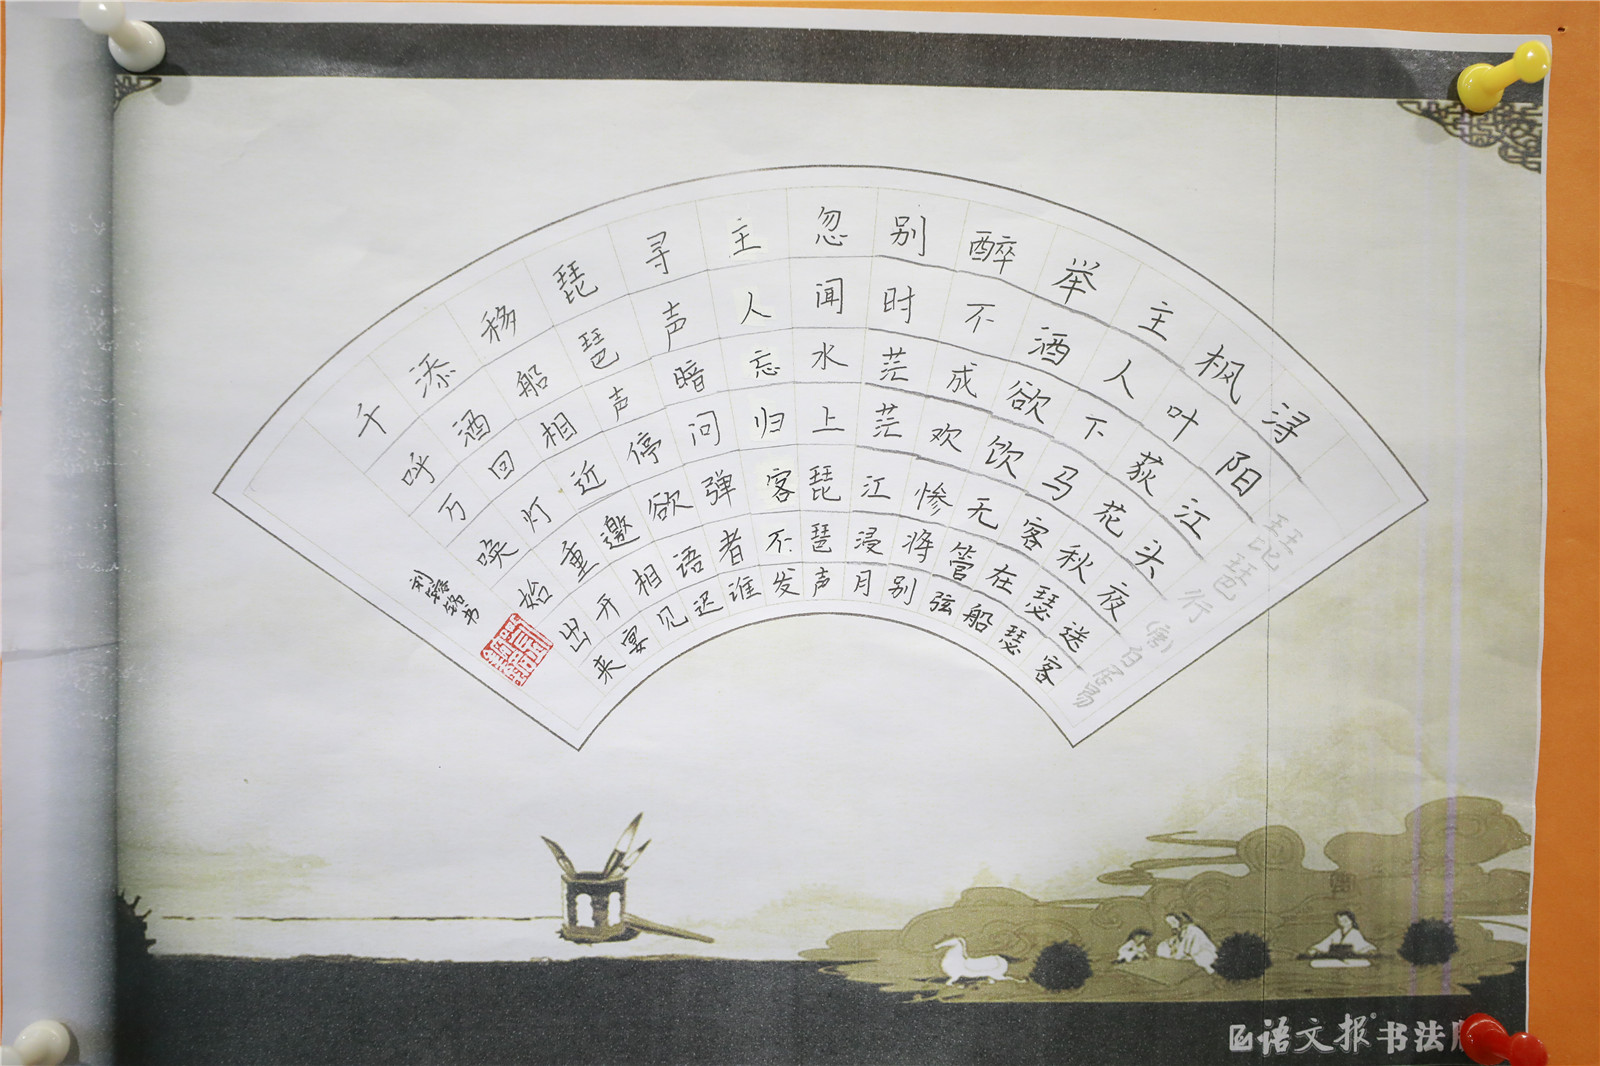 琵琶行(唐)白居易
浔阳江头夜送客
枫叶荻花秋瑟瑟
主人下马客在船
举酒欲饮无管弦
醉不成欢惨将别
别时茫茫江浸月
忽闻水上琵琶声
主人忘归客不发
寻声暗问弹者谁
琵琶声停欲语迟
移船相近邀相见
添酒回灯重开宴
千呼万唤始出来
刘 铭书
语文报 书法